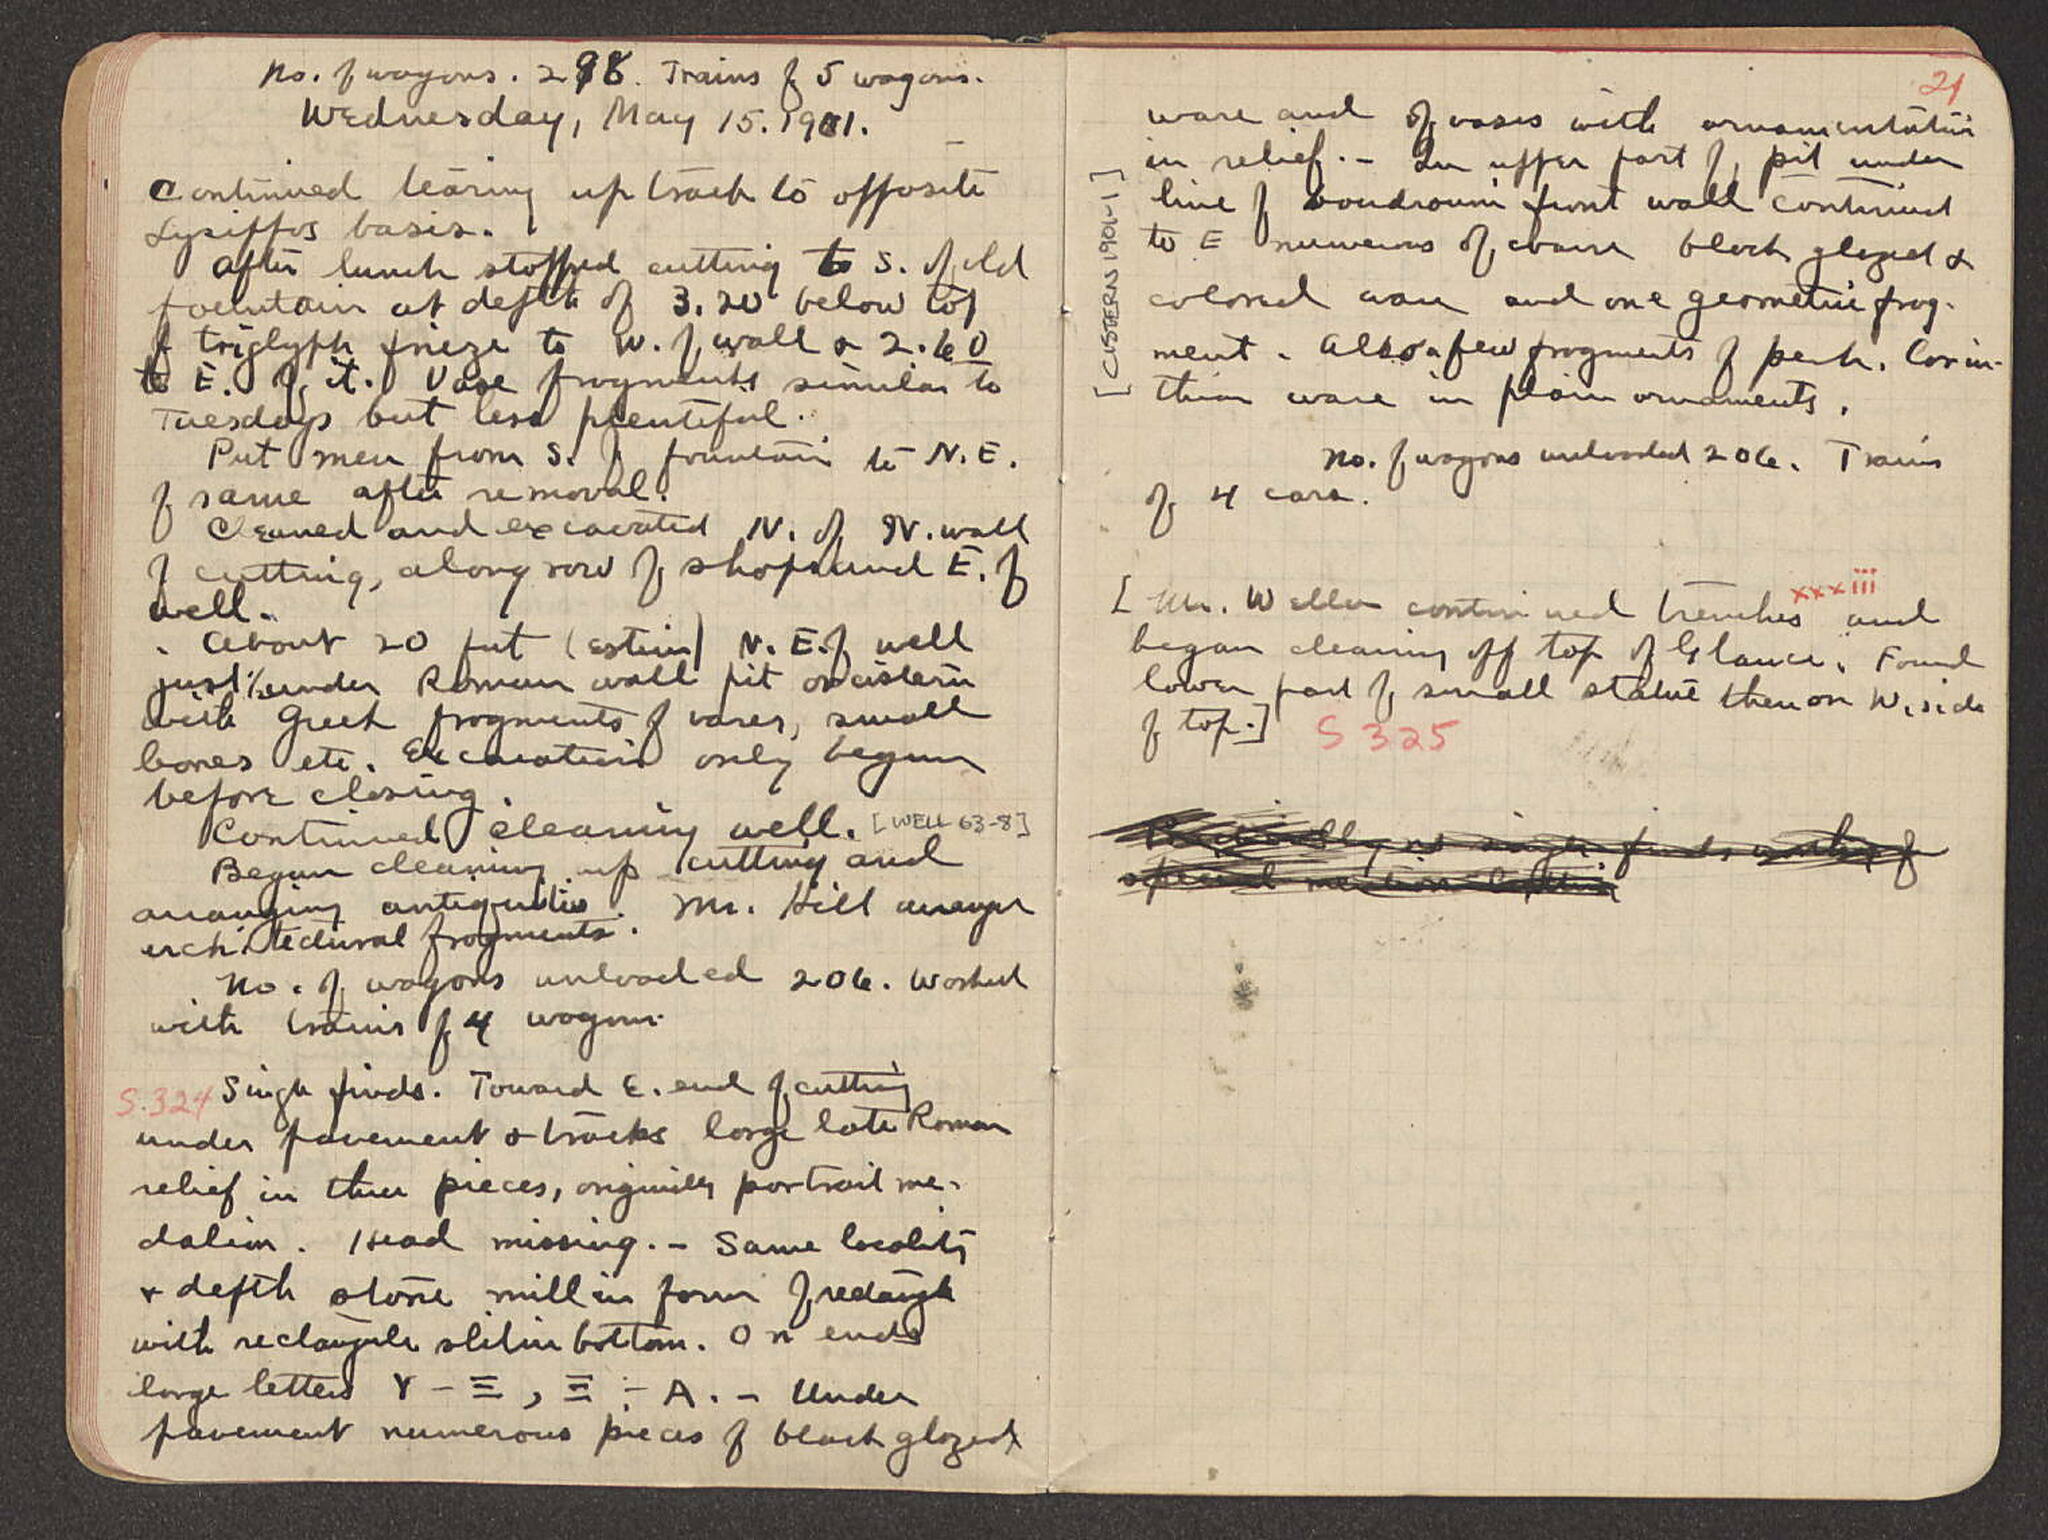 No. of wagons. 298. Trains of 5 wagons.
Wednesday, May 15. 1901.
Continued tearing up track to opposite
Lysippos basis.
After lunch stopped cutting to S. of old
fountain at depth of 3.20 below top
of triglyph frieze to W. of wall & 2.60
to E. of it. Vase fragments similar to
Tuesdays but less plentiful.
Put men from S. of fountain to N.E.
of same after removal.
Cleaned and excavated N. of N. wall
of cutting, along row of shops and E. of
well.
About 20 feet (estim) N.E. of well
just under Roman wall pit or cistern
with Greek fragments of vases, small
bones etc. Excavation only begun
before closing.
Continued cleaning well. [WELL 63-8]
Began cleaning up cutting and
arranging antiquities. Mr. Hill arranged
architectural fragments.
No. of wagons unloaded 206. Worked
with trains of 4 wagons.
S.324 Single finds. Toward E. end of cutting
under pavement & tracks large late Roman
relief in three pieces, originally portrait me-
dalion. Head missing. - Same locality
& depth stone mill in form of rectangle
with rectangle slit in bottom. On ends
large letters Υ - Ξ, Ξ - A. - Under
pavement numerous pieces of black glazed
21
ware and of vases with ornamentation
in relief. - In upper part of pit under
line of front wall continued
to E numerous of coarse black glazed &
colored ware and one geometric frag-
ment. Also a few fragments of Corin-
thian ware in plain ornaments.
[CISTERN 1901-1]
No. of wagons unloaded 206. Trains
of 4 cars.
[Mr. Weller continued trenches xxxiii and
began cleaning off top of Glauce. Found
lower part of small statue thereon W. side
of top.] S 325
no single finds worthy of
special mention